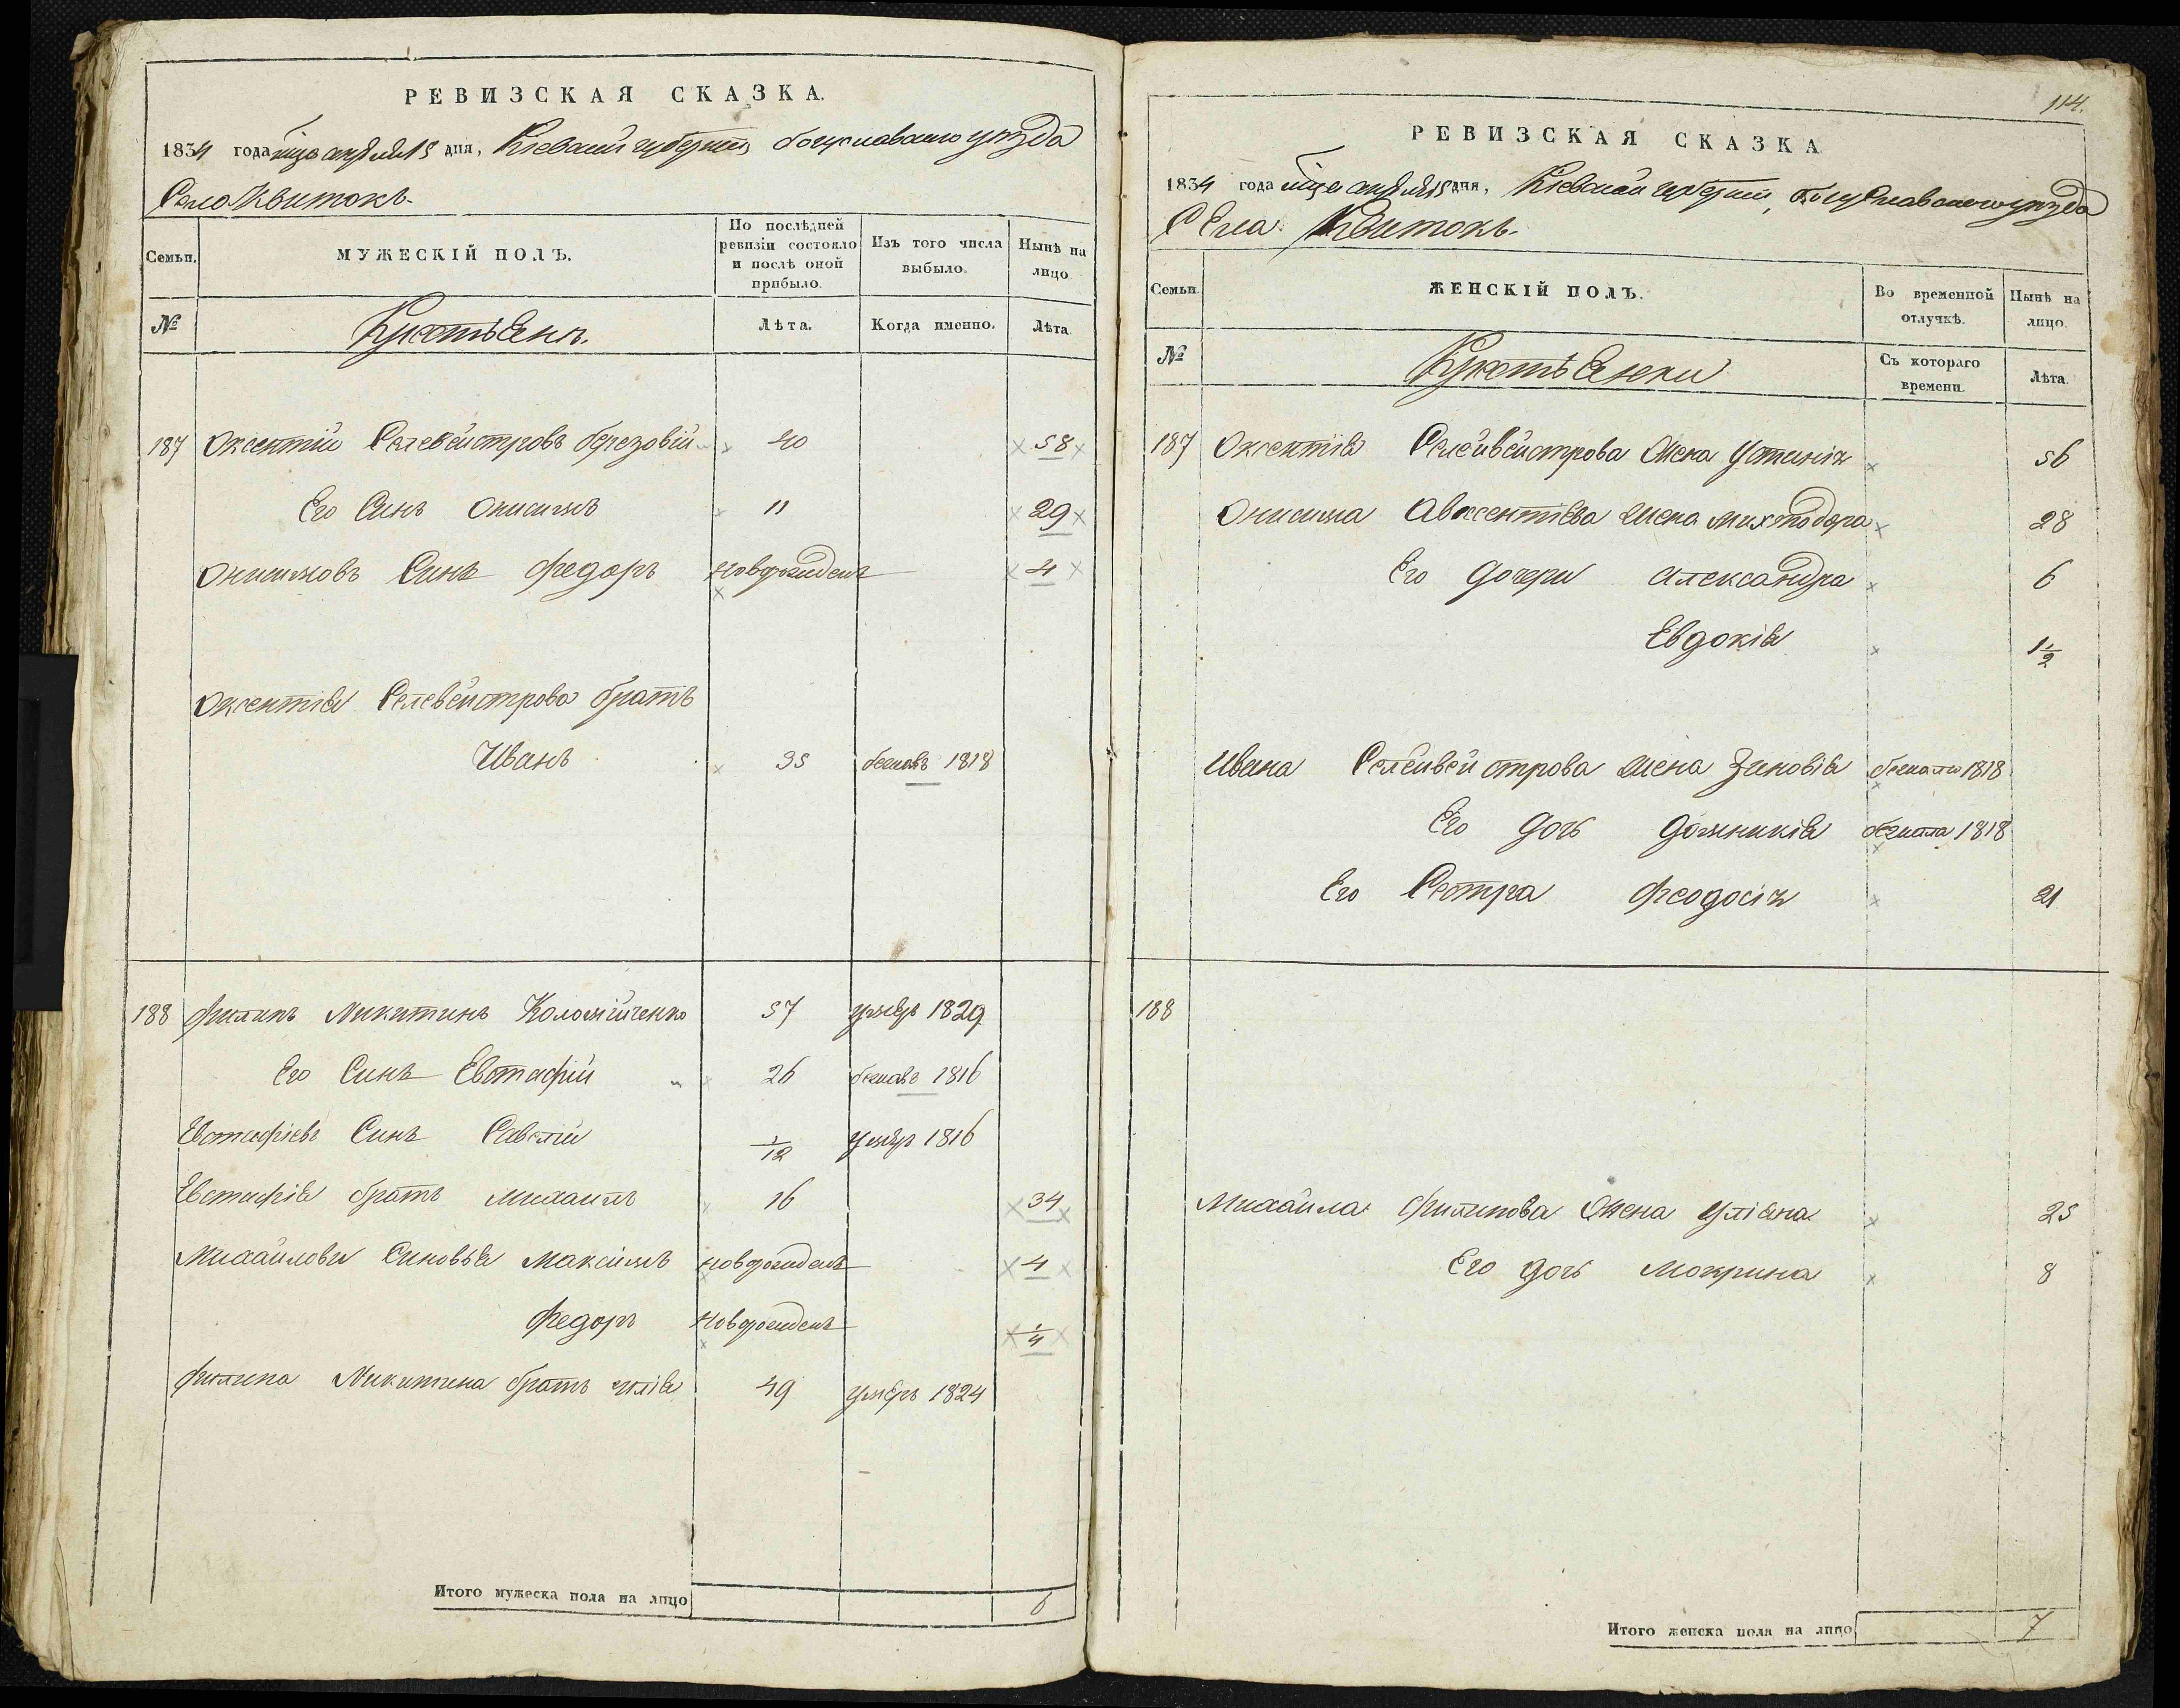 РЕВИЗСКАЯ СКАЗКА.
1834 года мца апреля 15 дня, Кіевской губерніи Богуславского уезда
Село Квитокъ.
Семьи.
МУЖЕСКІЙ ПОЛЪ.
По послѣдней ревизіи состояло и послѣ оной прибыло.
Изъ того числа выбыло.
Нынѣ на лицо.
№
Крестьянъ.
Лѣта.
Когда именно.
Лѣта.
187 Оксентий Селевейстровъ Березовій 40 58
Его Синъ Онисимъ 11 29
Онисимовъ Синъ Федоръ новорожденъ 4
Оксентія Селевейстрова братъ
Иванъ 35 бежавъ 1818
188 Филипъ Микитинъ Коломійченко 57 умеръ 1829
Его Синъ Евстафій 26 бежавъ 1816
Евстафіевъ Синъ Савелій 1/12 умеръ 1816
Евстафія братъ Михаилъ 16 34
Михайлови Синовья Максимъ новорожденъ 4
Федоръ новорожденъ 1/4
Филипа Микитина братъ Илія 49 умеръ 1824
Итого мужеска пола на лицо 6
114.
РЕВИЗСКАЯ СКАЗКА
1834 года мца апреля 15 дня, Кіевской губерніи, Богуславского уезда
Села Квитокъ.
Семьи.
ЖЕНСКІЙ ПОЛЪ.
Во временной отлучкѣ.
Нынѣ на лицо.
№
Крестьянки
Съ котораго времени.
Лѣта.
187 Оксентія Селейвейстрова Жена Устинія 56
Онисима Авксентіева жена Михтодора 28
Его дочери Александра 6
Евдокія 1 1/2
Ивана Селейвейстрова жена Зиновія бежала 1818
Его дочь Домникія бежала 1818
Его Сестра Феодосія 21
188
Михайла Филипова Жена Уліяна 25
Его дочь Мокрина 8
Итого женска пола на лицо 7